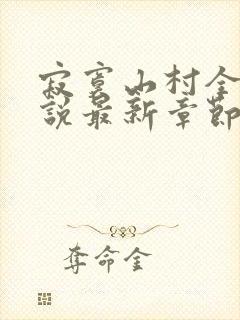 寂寞山村全
說最新章節
奪命金